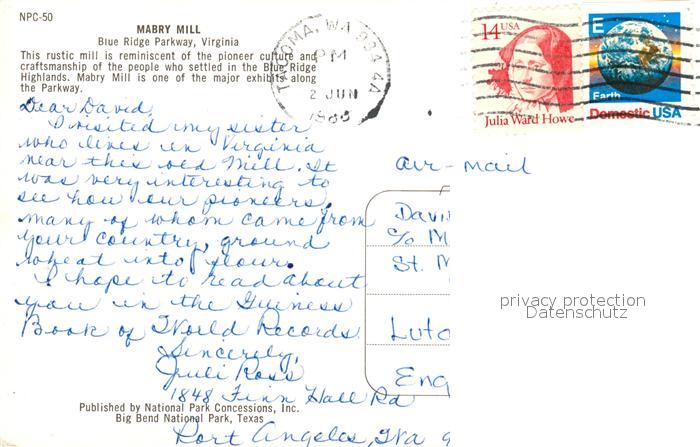 NPC-50
MABRY MILL
Blue Ridge Parkway, Virginia
This rustic mill is reminiscent of the pioneer culture and
craftsmanship of the people who settled in the Blue Ridge
Highlands. Mabry Mill is one of the major exhibits along
the Parkway.
Dear David,
I visited my sister
who lives in Virginia
near this old Mill. It
was very interesting to
see how our pioneers,
many of whom came from
your country, ground
wheat into flour.
I hope to read about
you in the Guiness
Book of World Records.
Sincerely,
Juli Ross
1848 Finn Hall Rd
Port Angeles, Wa 9
Published by National Park Concessions, Inc.
Big Bend National Park, Texas
TACOMA, WA 984 4A
PM
2 JUN
14 USA
Julia Ward Howe
E
Earth
Domestic USA
air-mail
Davi
c/o M
St. M
Luto
Eng
privacy protection
Datenschutz